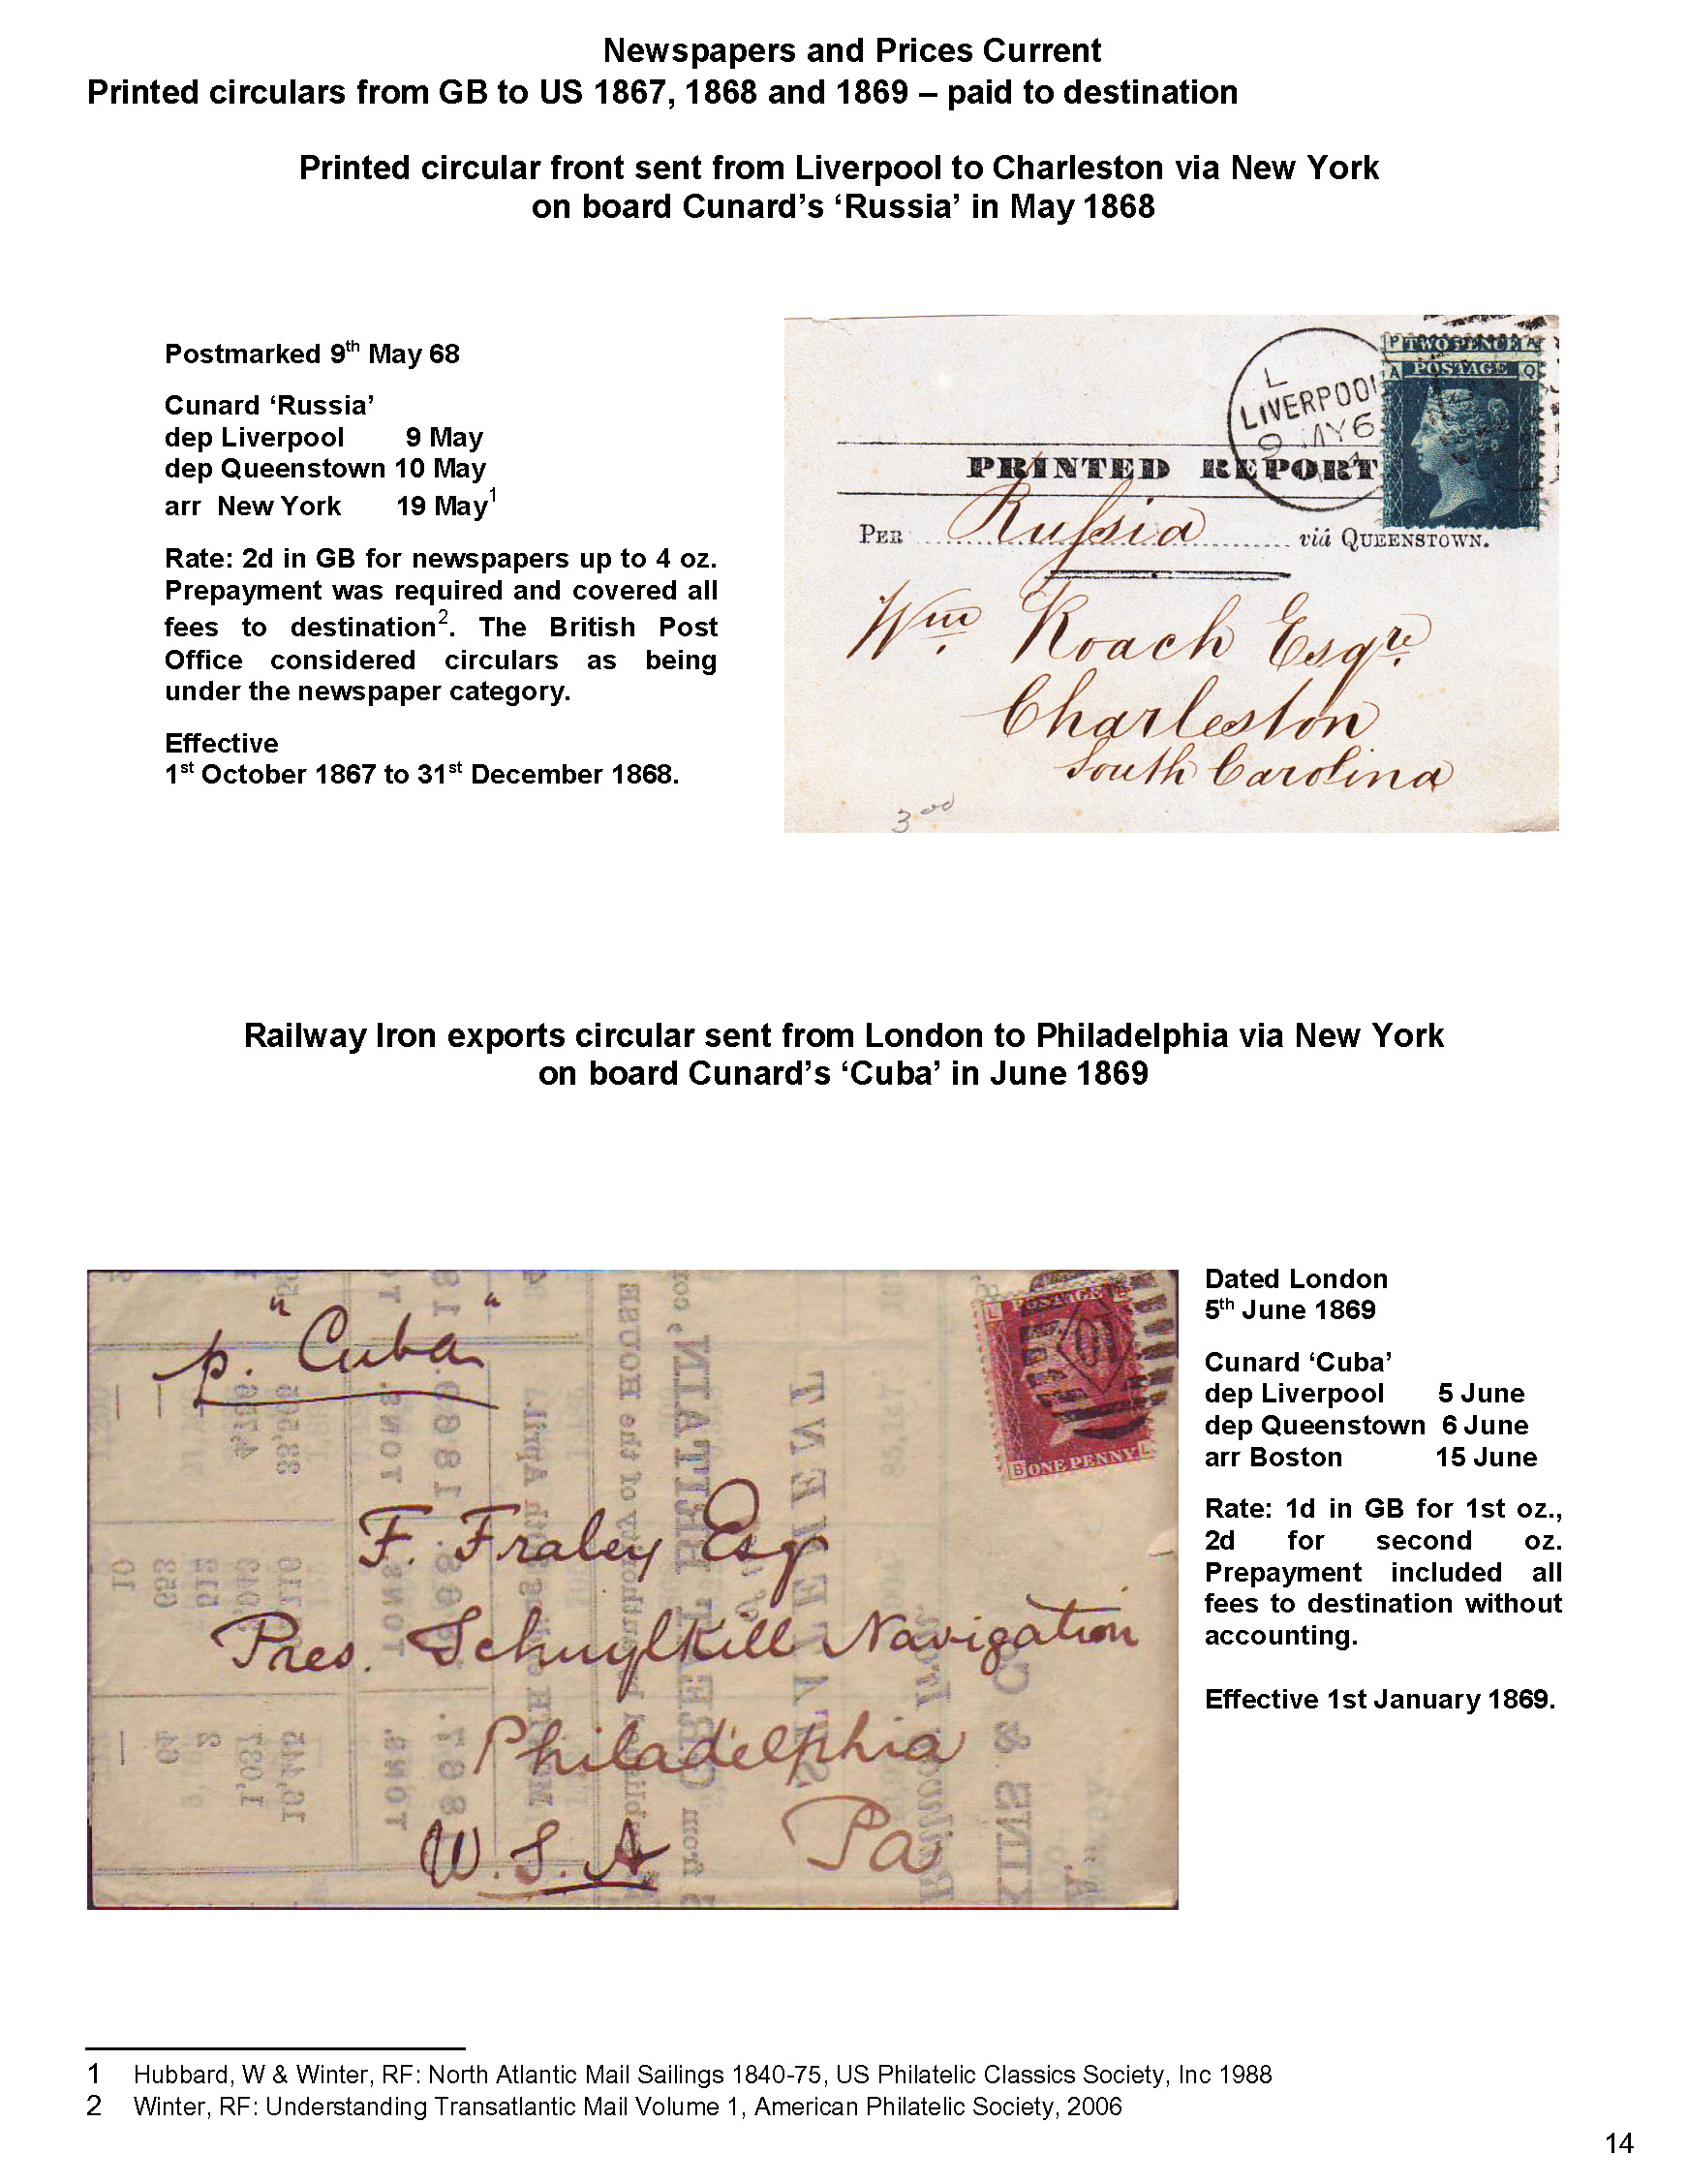 Newspapers and Prices Current
Printed circulars from GB to US 1867, 1868 and 1869 – paid to destination
Printed circular front sent from Liverpool to Charleston via New York
on board Cunard’s ‘Russia’ in May 1868
Postmarked 9th May 68
Cunard ‘Russia’
dep Liverpool 9 May
dep Queenstown 10 May
arr New York 19 May1
Rate: 2d in GB for newspapers up to 4 oz.
Prepayment was required and covered all
fees to destination2. The British Post
Office considered circulars as being
under the newspaper category.
Effective
1st October 1867 to 31st December 1868.
L
LIVERPOOL
9 MY 6
TWO PENCE
A POSTAGE Q
PRINTED REPORT
PER Russia viá QUEENSTOWN.
Wm Roach Esqre
Charleston
South Carolina
Railway Iron exports circular sent from London to Philadelphia via New York
on board Cunard’s ‘Cuba’ in June 1869
p. "Cuba"
POSTAGE
B ONE PENNY L
F. Fraley Esq
Pres. Schuylkill Navigation
Philadelphia
U.S.A Pa
Dated London
5th June 1869
Cunard ‘Cuba’
dep Liverpool 5 June
dep Queenstown 6 June
arr Boston 15 June
Rate: 1d in GB for 1st oz.,
2d for second oz.
Prepayment included all
fees to destination without
accounting.
Effective 1st January 1869.
1 Hubbard, W & Winter, RF: North Atlantic Mail Sailings 1840-75, US Philatelic Classics Society, Inc 1988
2 Winter, RF: Understanding Transatlantic Mail Volume 1, American Philatelic Society, 2006
14